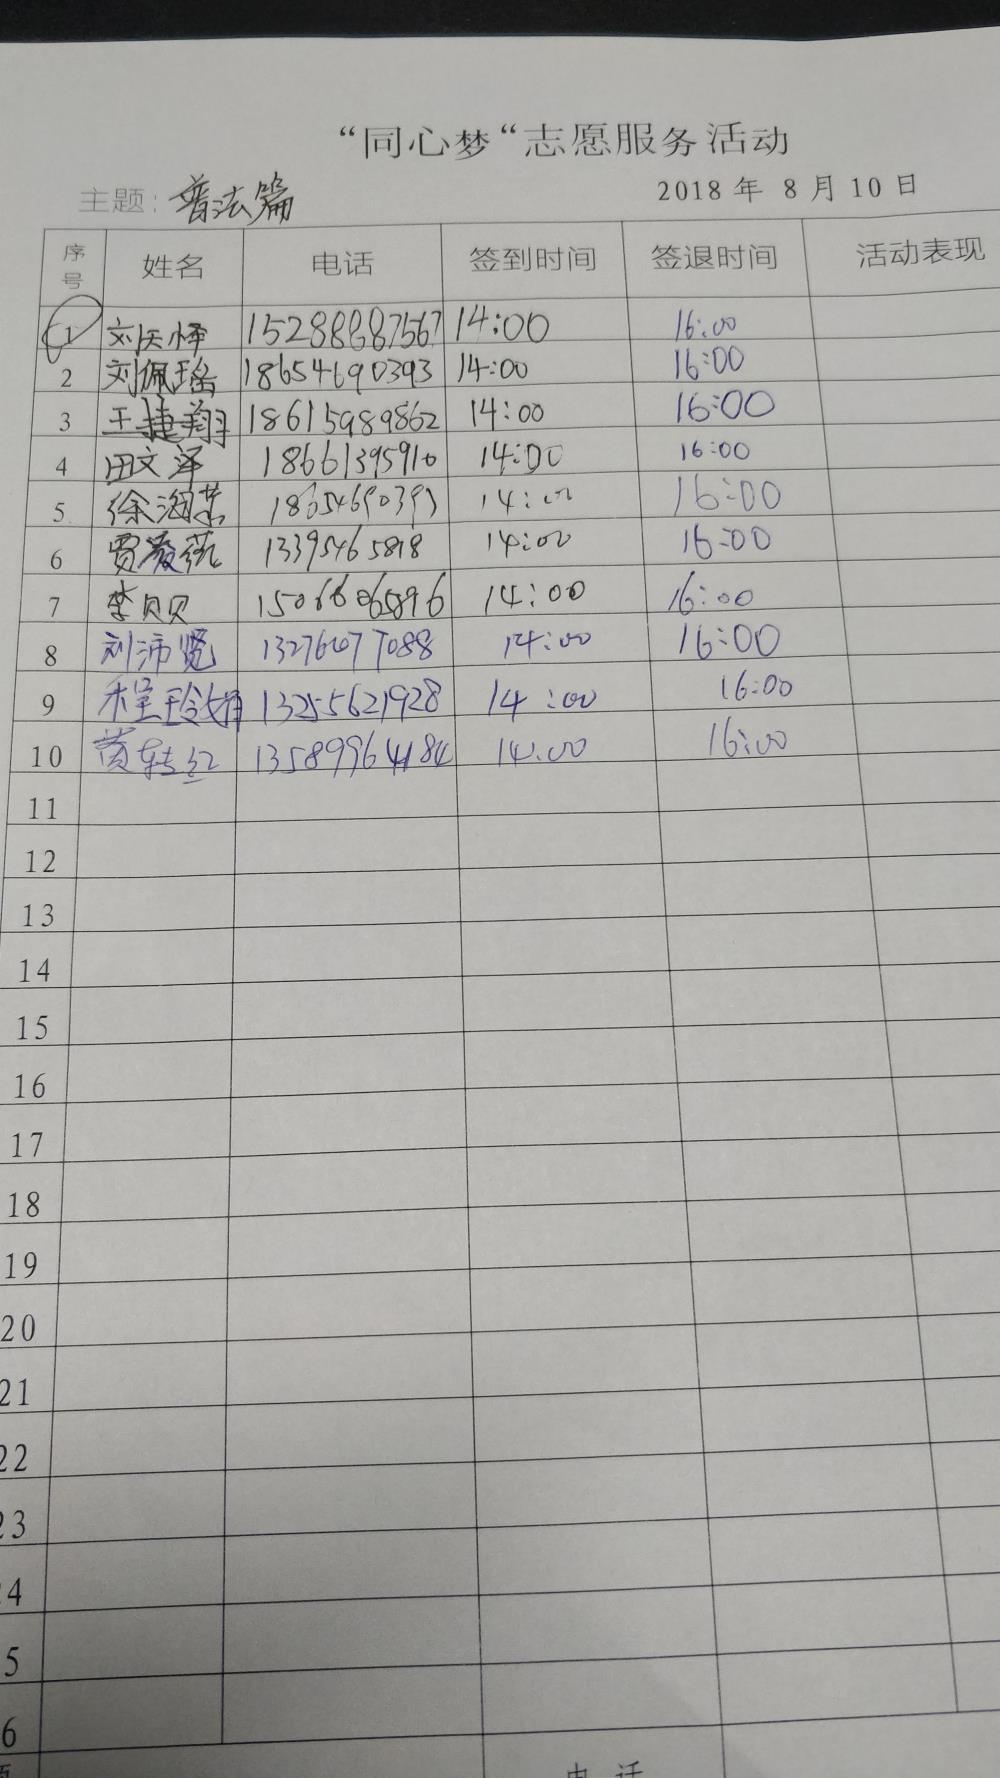 “同心梦“志愿服务活动
主题：普法篇 2018年 8月10日
序号 姓名 电话 签到时间 签退时间 活动表现
1 15288887567 14:00 16:00
2 刘佩瑶 18654690393 14:00 16:00
3 王捷翔 18615989862 14:00 16:00
4 田文泽 18661395910 14:00 16:00
5 18654690393 14:00 16:00
6 13395465818 14:00 16:00
7 李贝贝 15066065896 14:00 16:00
8 刘沛 14:00 16:00
9 13255621928 14:00 16:00
10 黄转红 13589964184 14:00 16:00
11
12
13
14
15
16
17
18
19
20
21
22
23
4
5
6
电话